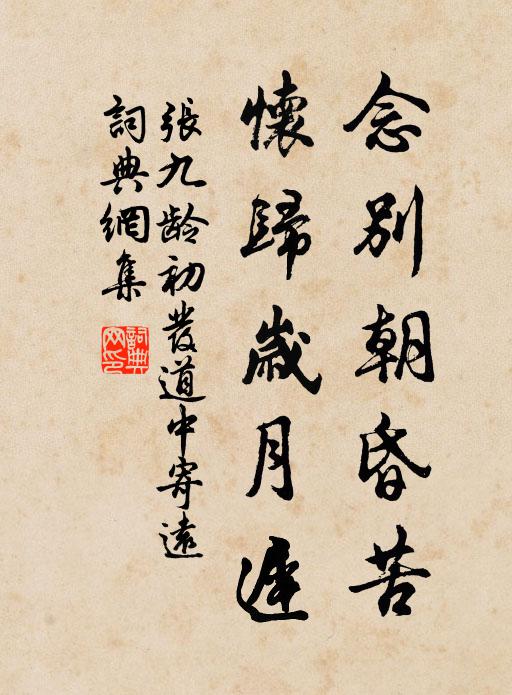 念别朝昏苦
懷歸歲月遲
張九龄初發道中寄遠
詞典網集
詞典网印